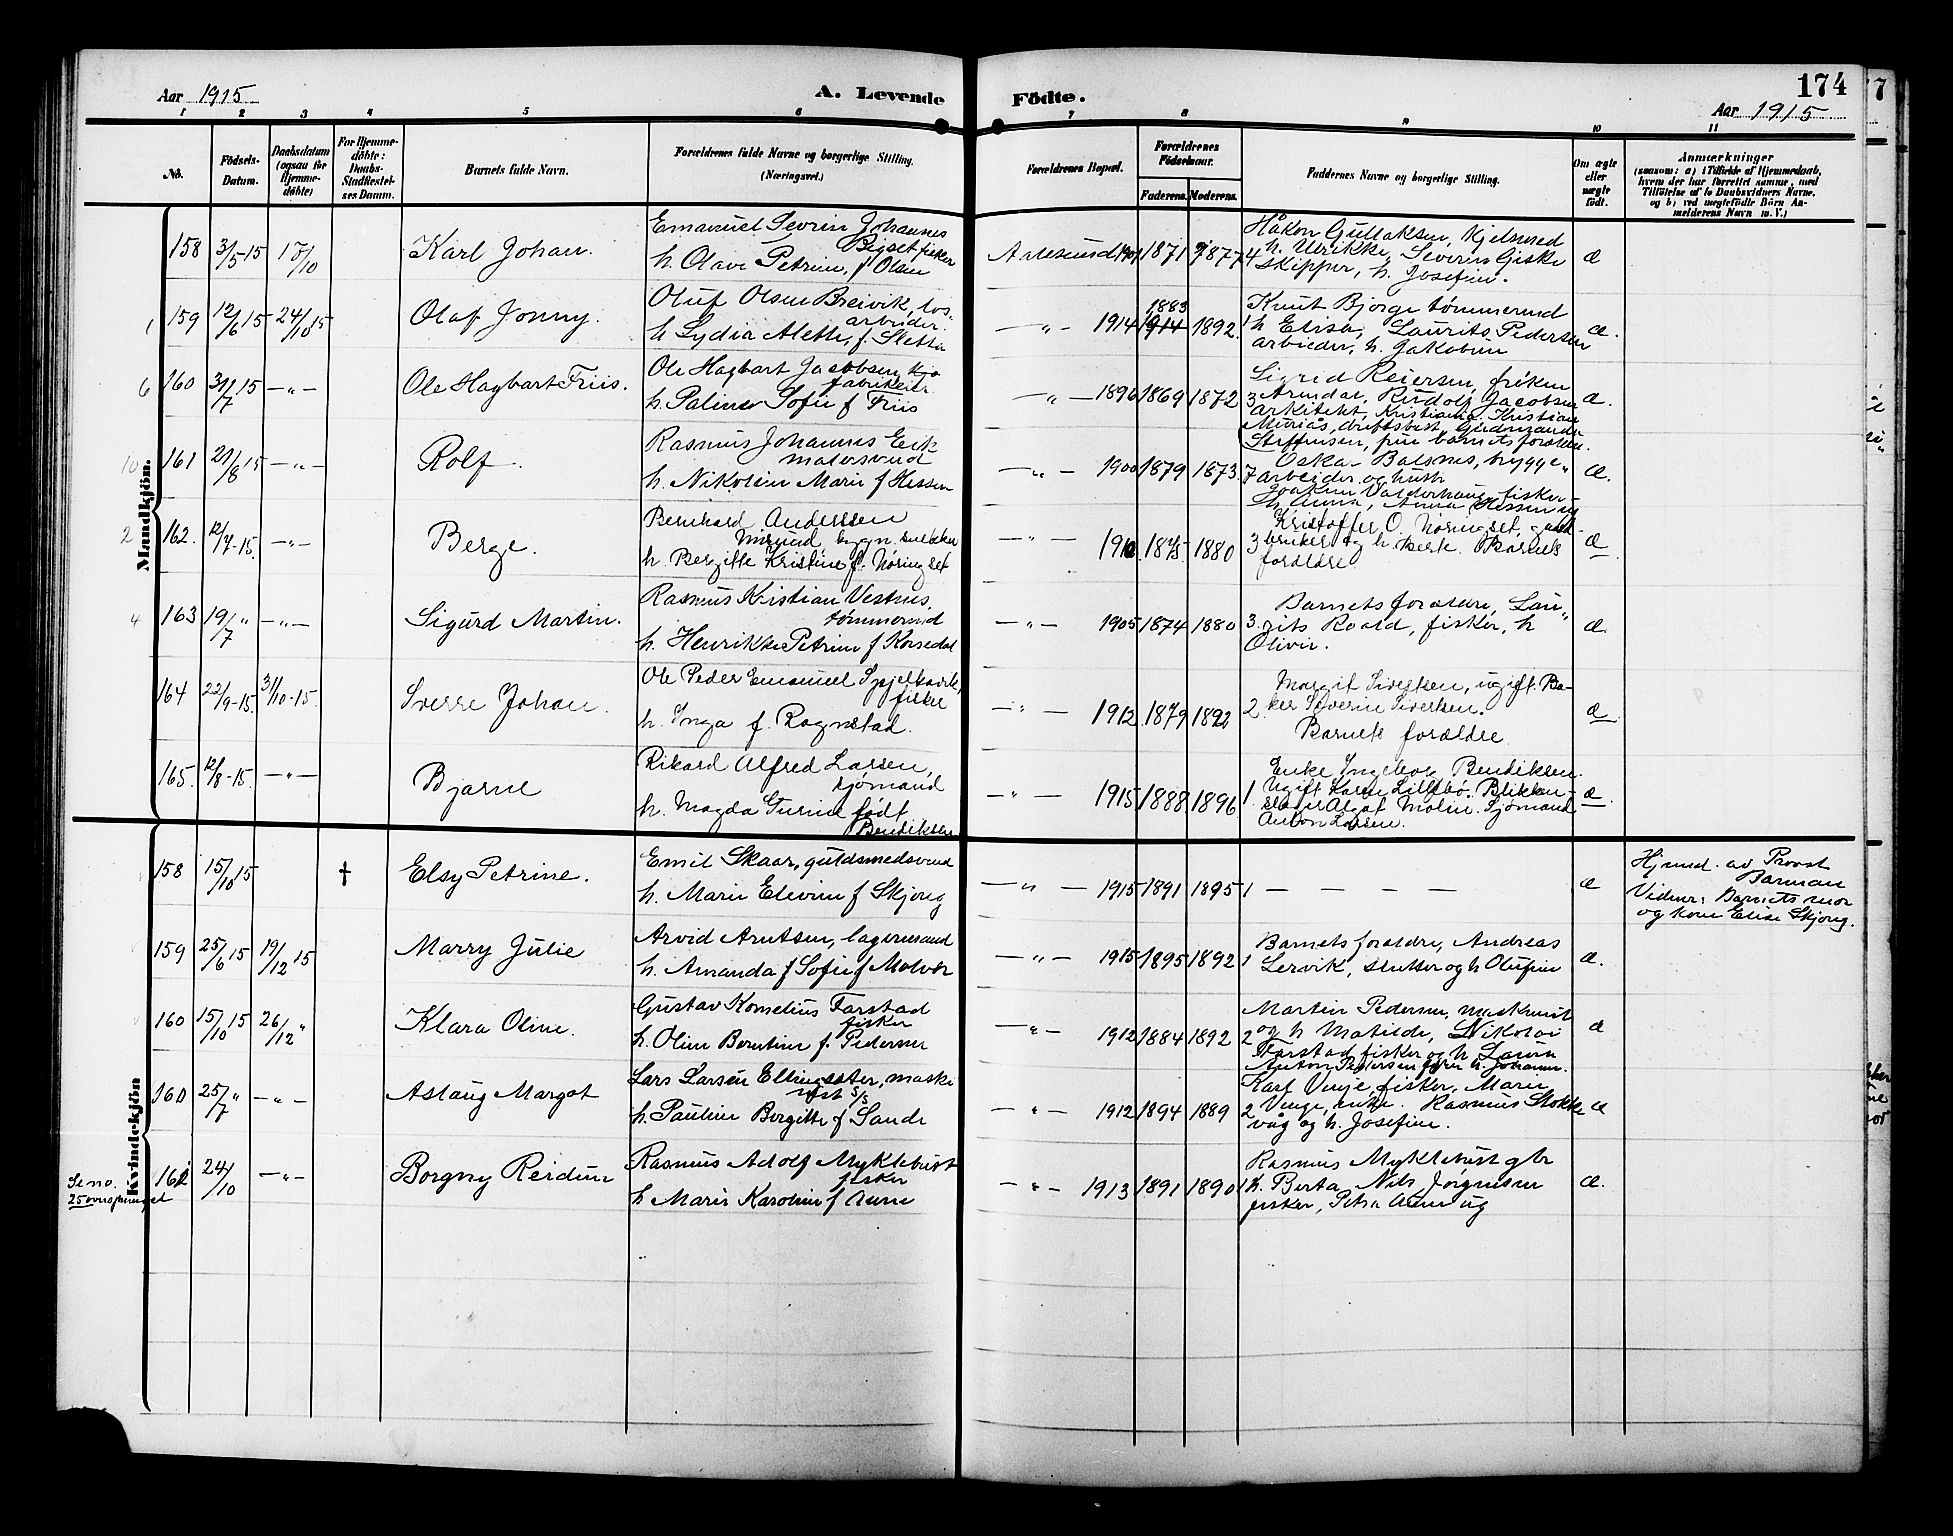 174
Aar 1915
A. Levende
Födte.
Aar 1915
1 2 3 4 5 6 7 8 9 10 11
No.
Födsels-
Datum.
Daabsdatum
(ogsaa for
Hjemme-
döbte)
For Hjemme-
döbte:
Daabs-
Stadfæstel-
ses Datum.
Barnets fulde Navn.
Forældrenes fulde Navne og borgerlige Stilling.
(Næringsvei.)
Forældrenes Bopæl.
Forældrenes
Födselsaar.
Faderens. Moderens.
Faddernes Navne og borgerlige Stilling.
Om ægte
eller
uægte
født.
Anmærkninger
(saasom: a) i Tilfælde af Hjemmedaab,
hvem der har forrettet samme, med
Tilföielse af to Daabsvidners Navne,
og b) ved uægtefödte Börn An-
melderens Navn m. V.)
Mandkjön.
158 3/5-15 15/10 Karl Johan.
Emanuel Severin Johannes
fisker
h. Olave Petrine, f Olsen
Aalesund 1901 1871 1877 4
Håkon Gullaksen, Kjelsmed
h. Ulrikke, Severin Giske
skipper, h. Josefine.
æ
1 159 12/6 15 24/10 15 Olaf Jonny.
Oluf Olsen Breivik, løs-
arbeider.
h Lydia Alethe, f. Sletta
— " — 1914 1883 1914 1892. 1
Knut Bjorge tømmermd
h Elisa, Laurits Pedersen
arbieder, h. Jakobine
æ.
6 160 31/7 15 — " — Ole Hagbart Friis.
Ole Hagbart Jacobsen
fabrikeier
h. Paline Sofie f Friis
— " — 1896 1869 1872 3
Sigrid Reiersen, frøken
Arendal, Rudolf Jacobsen
arkitekt, Kristiania. Kristian
Steffensen, frue barnets forældre.
æ.
10 161 21/8 15 — " — Rolf.
Rasmus Johannes Eik
malersvend
h. Nikoline Marie f Hessen
— " — 1900 1879 1873. 7
Oskar Balsnes, brygge-
arbeider og hustr
Joakim Valderhaug, fisker
h Anna, Anna Hessen ug
æ.
2 162. 12/7-15. — " — Berge.
Bernhard Anderssen
bygn. snekker
h. Bergitte Kristine f. Nøringset
— " — 1910. 1875- 1880 3
Kristoffer O. Nøringset, gård-
bruker og h. Berte. Barnets
forældre
æ
4 163 19/7 " — " — Sigurd Martin.
Rasmus Kristian Vestnes,
tømmermd
h. Henrikke Petrine f Korsedal
— " — 1905 1874 1880 3.
Barnets forældre, Lau-
rits Roald, fisker, h
Olivie.
æ
164 22/9-15. 31/10-15. Sverre Johan.
Ole Peder Emanuel Spjelkavik,
fisker
h. Inga f. Rognstad.
— " — 1912 1879 1892 2.
Margit Sivertsen, ugift. Ba-
ker Severin Sivertsen.
Barnets forældre.
æ
165. 12/8-15. — " — Bjarne
Rikard Alfred Larsen,
sjømand
h. Magda Gurine født
Bendiksen
— " — 1915 1888 1896 1.
Enke Ingeborg Bendiksen.
Ugift Karen Lillebø. Blikken-
slager Algot Molin. Sjømand
Anton Larsen.
æ.
Kvindekjön
158 15/10 15 † Elsy Petrine.
Emil Skaar, guldsmedsvend
h. Marie Elevine f Skjong
— " — 1915 1891 1895 1 — — — — æ
Hjemd. av Provst
Barman
Vidner: Barnets mor
og kone Elise Skjong.
159 25/6 15 19/12 15 Marry Julie
Arvid Arntsen, lagermand
h. Amanda f Sofie f Molvær
— " — 1915 1895 1892 1
Barnets forældre, Andreas
Lervik, slakter og h Olufine
æ.
160 15/10 15 26/12 " Klara Oline.
Gustav Kornelius Farstad
fisker
h. Oline Berntine f. Pedersen
— " — 1912 1884 1892 2
Martin Pedersen, maskinist
og h Matilde, Nikolai
Farstad fisker og h Laura
Anton Pedersen fyrer h Johanne.
æ
160 25/7 " — " — Aslaug Margot
Lars Larsen Ellingsæter, maski
nist S/S
h. Pauline Bergitte f Sande
— " — 1912 1894 1889 2
Karl Vinje, fisker, Marie
Vinge, enke. Rasmus Stokke
våg og h. Josefine.
æ
Se no.
25 overspringet
161 24/10 — " — Borgny Reidun
Rasmus Adolf Myklebust
fisker
h Marie Karoline f Aune
— " — 1913 1891 1890 1
Rasmus Myklebust gbr
h. Berta, Nils Jørgensen
fisker, Petra Aune ug
æ.